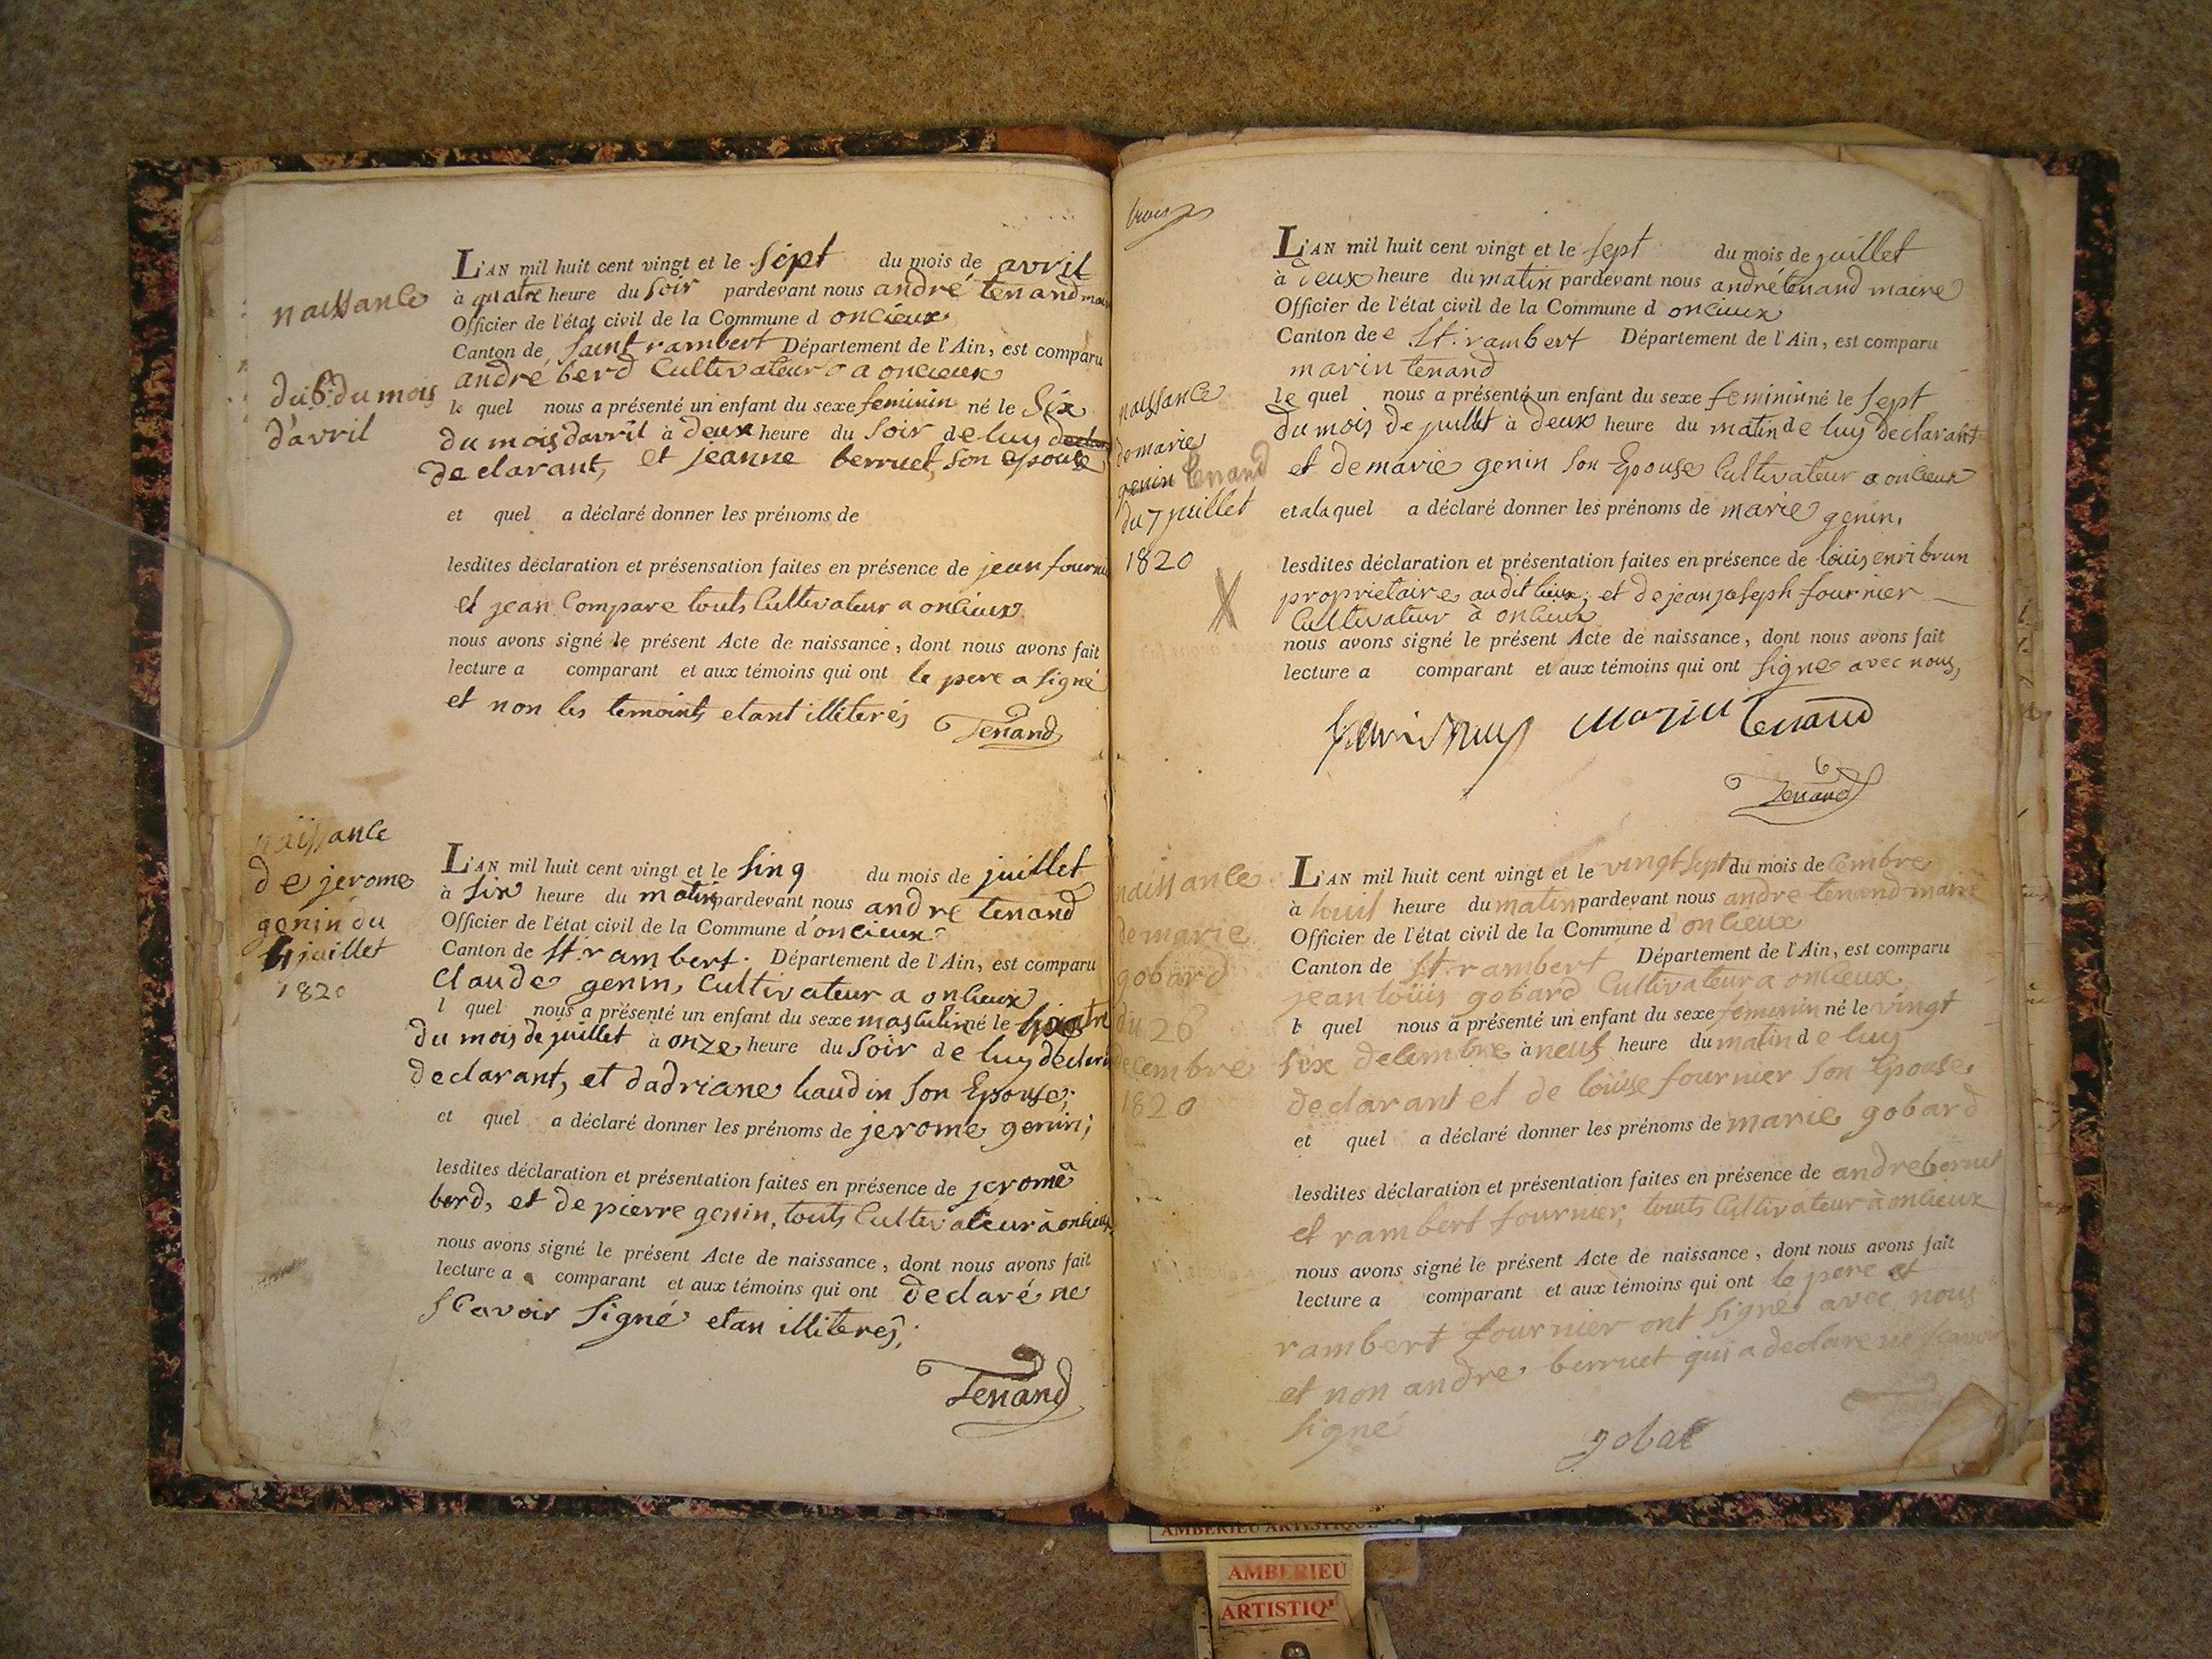 naissance
du 6 du mois
d'avril
L'AN mil huit cent vingt et le sept du mois de avril
à quatre heure du soir pardevant nous andré tenand maire
Officier de l'état civil de la Commune d oncieux
Canton de saint rambert Département de l'Ain, est comparu
andré berd Cultivateur a oncieux
le quel nous a présenté un enfant du sexe feminin né le six
du mois davril à deux heure du soir de luy
declarant, et jeanne berruet, son epouse
et quel a déclaré donner les prénoms de
lesdites déclaration et présensation faites en présence de jean fournier
et jean Compare touts Cultivateur a oncieux
nous avons signé le présent Acte de naissance, dont nous avons fait
lecture a comparant et aux témoins qui ont le pere a signé
et non les temoints etant illiterés
Tenand
naissance
de jerome
genin du
4 juillet
1820
L'AN mil huit cent vingt et le sinq du mois de juillet
à six heure du matin pardevant nous andre tenand
Officier de l'état civil de la Commune d oncieux
Canton de st. rambert. Département de l'Ain, est comparu
Claude genin, Cultivateur a oncieux
l quel nous a présenté un enfant du sexe masculin né le quatre
du mois de juillet à onze heure du soir de luy
declarant, et dadriane baudin son Epouse;
et quel a déclaré donner les prénoms de jerome genin;
lesdites déclaration et présentation faites en présence de jerome
berd, et de pierre genin, touts Cultivateur à oncieux
nous avons signé le présent Acte de naissance, dont nous avons fait
lecture a comparant et aux témoins qui ont declaré ne
scavoir signé etan illiterés;
Tenand
trois
naissance
de marie
genin tenand
du 7 juillet
1820
X
L'AN mil huit cent vingt et le sept du mois de juillet
à deux heure du matin pardevant nous andré tenand maire
Officier de l'état civil de la Commune d oncieux
Canton de St. rambert Département de l'Ain, est comparu
marin tenand
le quel nous a présenté un enfant du sexe feminin né le sept
du mois de juillet à deux heure du matin de luy declarant
et de marie genin son Epouse Cultivateur a oncieux
et ala quel a déclaré donner les prénoms de marie genin.
lesdites déclaration et présentation faites en présence de louis enri brun
proprietaire audit lieux, et de jean joseph fournier
Cultivateur à oncieux
nous avons signé le présent Acte de naissance, dont nous avons fait
lecture a comparant et aux témoins qui ont signe avec nous,
marin tenand
Tenand
naissance
de marie
gobard
du 26
decembre
1820
L'AN mil huit cent vingt et le vingt sept du mois de cembre
à heure du matin pardevant nous andre tenand maire
Officier de l'état civil de la Commune d oncieux
Canton de St. rambert Département de l'Ain, est comparu
jean louis gobard Cultivateur a oncieux
l quel nous a présenté un enfant du sexe feminin né le vingt
six decembre à neuf heure du matin de luy
declarant et de loüise fournier son Epouse
et quel a déclaré donner les prénoms de marie gobard
lesdites déclaration et présentation faites en présence de andre berruet
et rambert fournier, touts Cultivateur à oncieux
nous avons signé le présent Acte de naissance, dont nous avons fait
lecture a comparant et aux témoins qui ont le pere et
rambert fournier ont signé avec nous
et non andre berruet qui a declare ne scavoir
signé
gobat
AMBERIEU ARTISTIQUE
AMBERIEU
ARTISTIQ